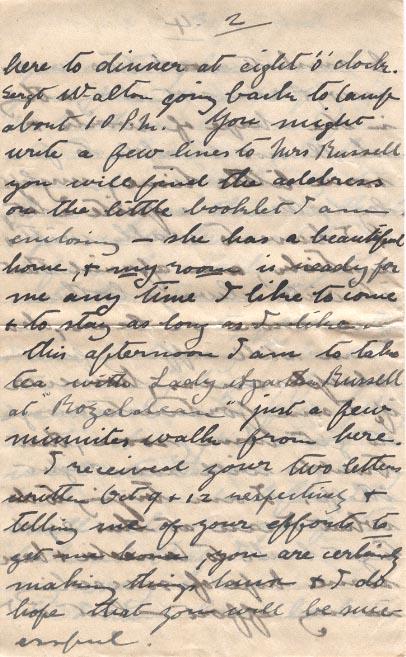 2
here to dinner at eight O'clock.
Sergt Walton going back to camp
about 10 P.M. You might
write a few lines to Mrs Russell
you will find the address
on the little booklet I am
enclosing – she has a beautiful
home, & my room is ready for
me any time I like to come
& to stay as long as I like.
this afternoon I am to take
tea with Lady Agatha Russell
at "Rozeldean" just a few
minutes walk from here.
I received your two letters
written Oct 9 & 12 respectively &
telling me of your efforts to
get me home, you are certainly
making things hum & I do
hope that you will be succ
essful.